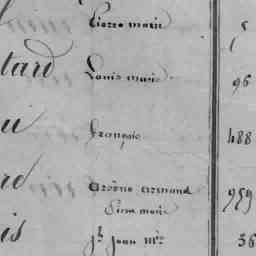 Pierre marie 5
tard Louis marie 96
François 488
rd Arsène Armand 959
Pierre marie
is Jh Jean Mie 36